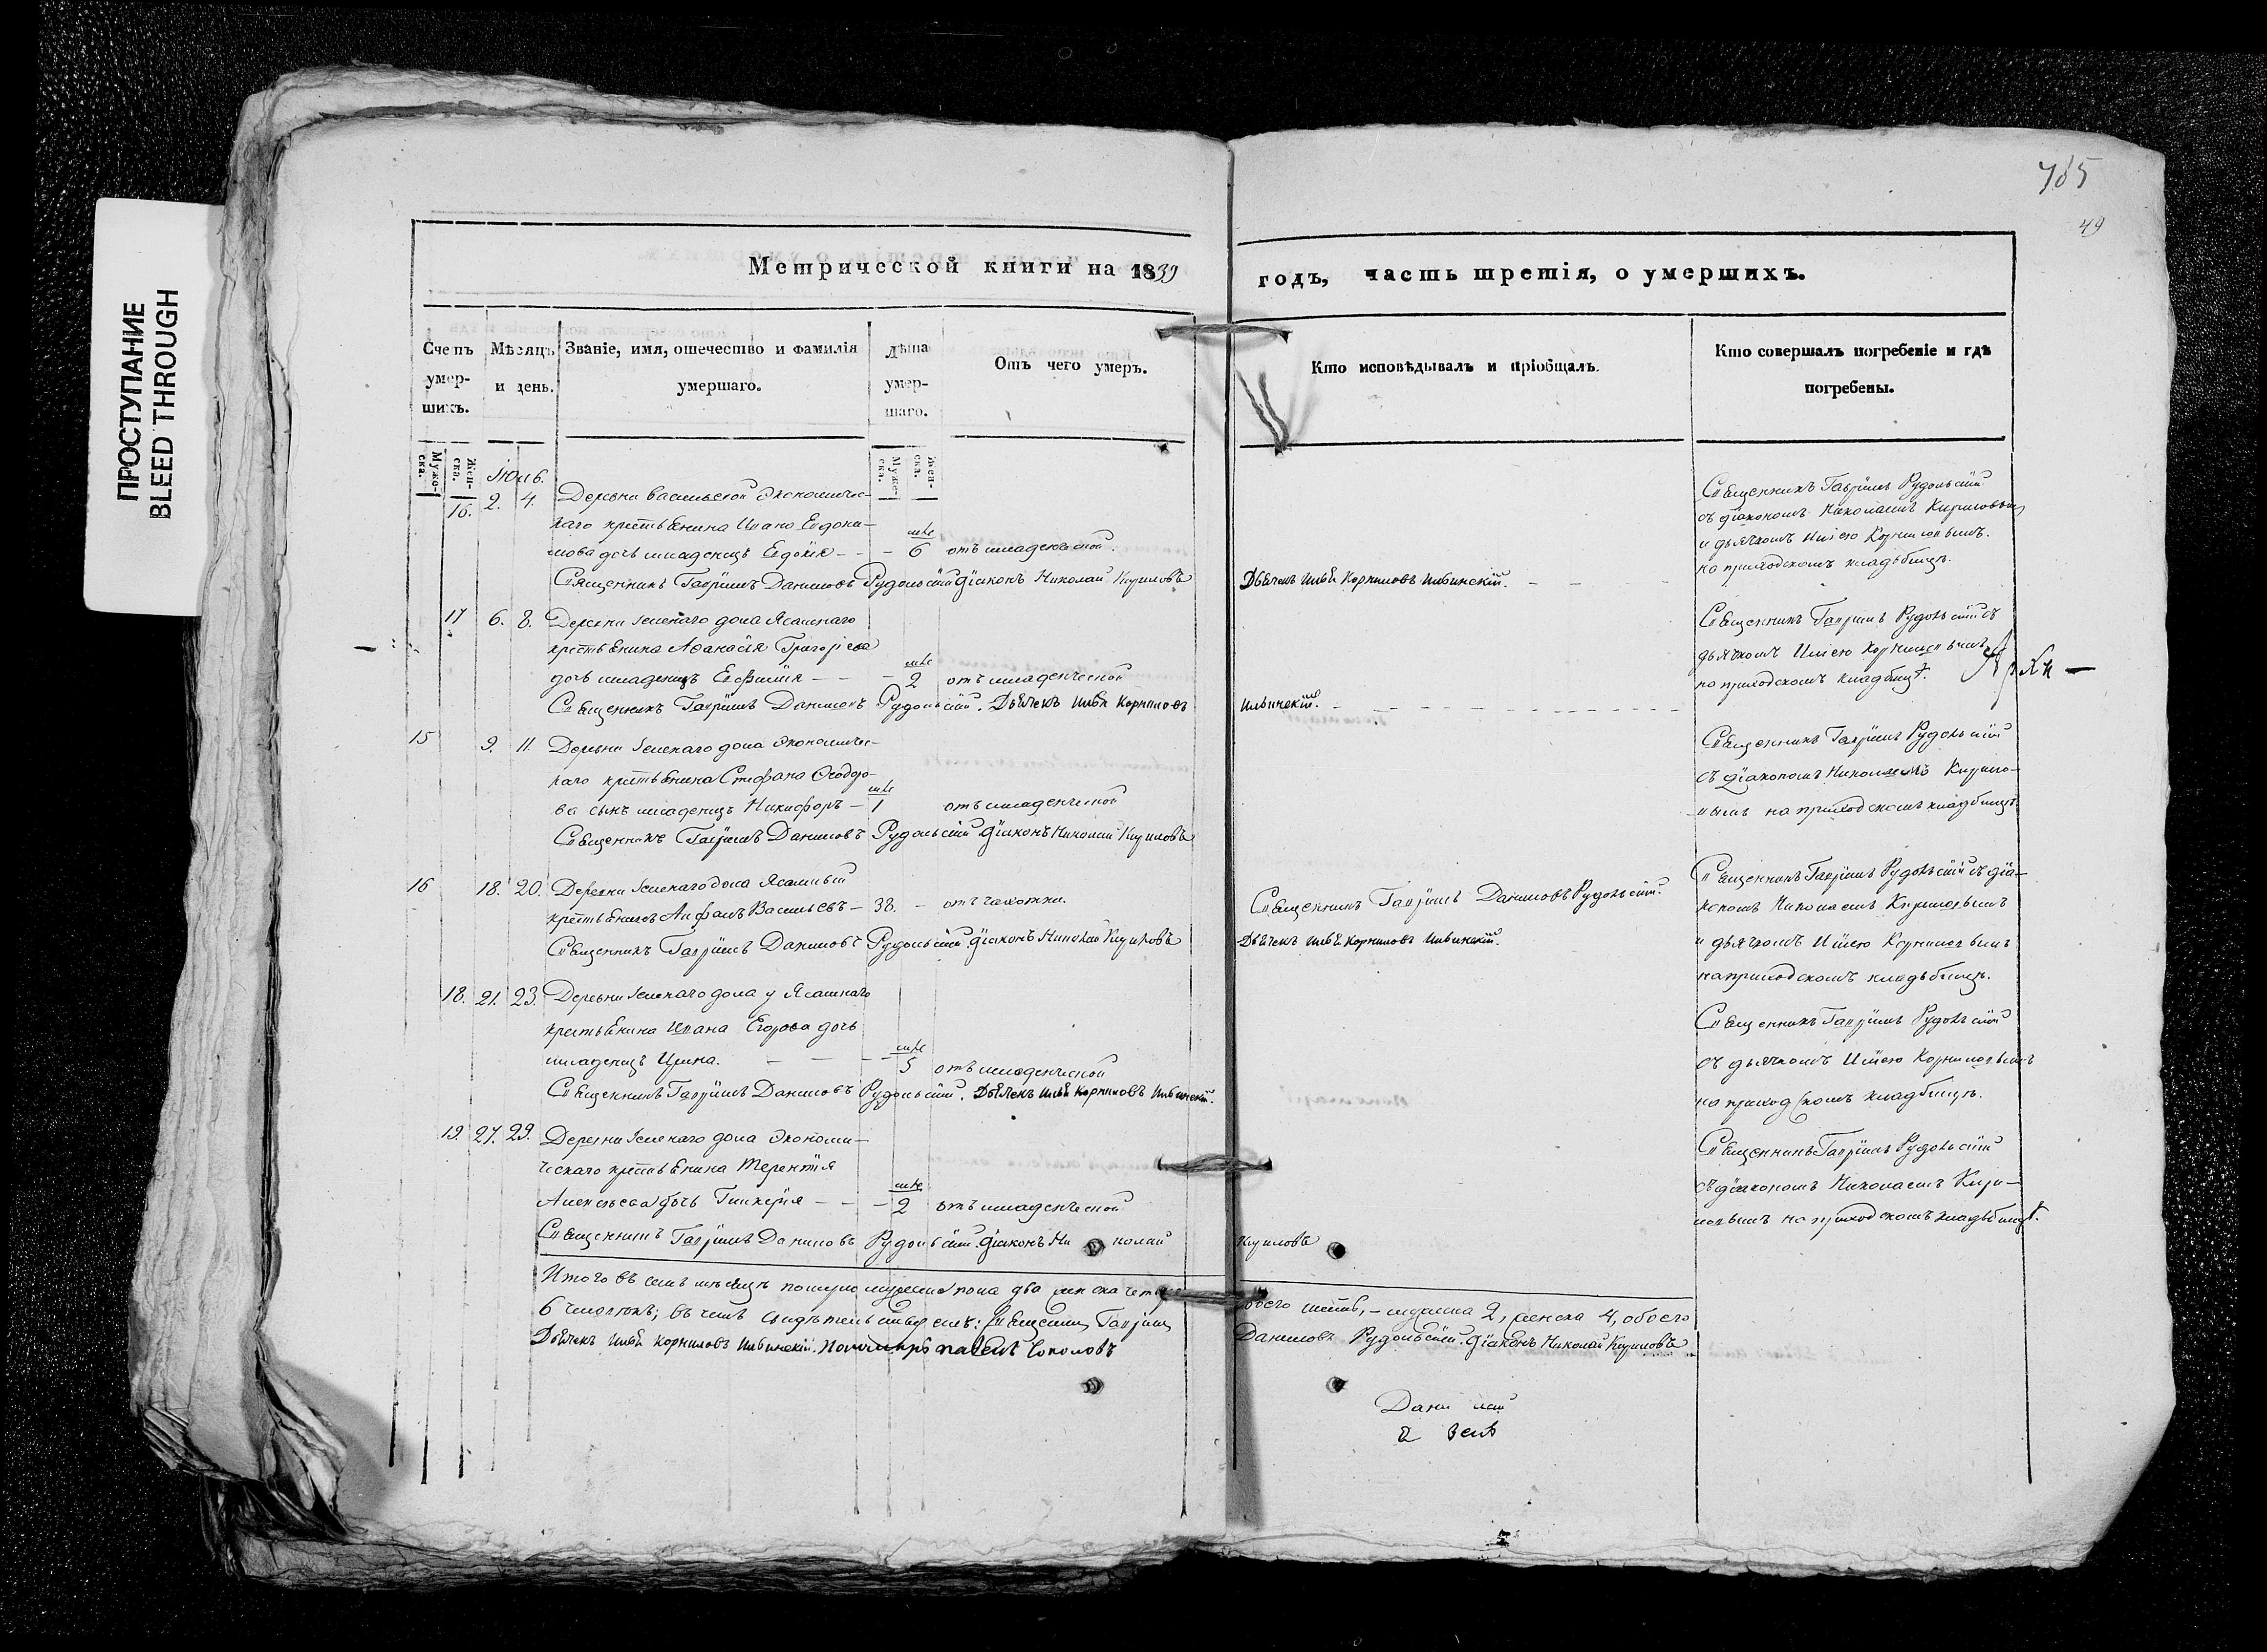 785
49
ПРОСТУПАНИЕ
BLEED THROUGH
Метрической книги на 1839 годъ, часть третія, о умершихъ.
Счетъ умер-шихъ.
Мѣсяцъ и день.
Званіе, имя, отечество и фамилія умершаго.
Лѣта умер-шаго.
Отъ чего умеръ.
Кто исповѣдывалъ и пріобщалъ.
Кто совершалъ погребеніе и гдѣ погребены.
Мужс-ска.
Жен-ска.
Мужс-ска.
Жен-ска.
Июль.
16. 2. 4. Деревни Васильевой Экономичес-
каго крестьянина Ивана Евдоки-
мова дочь младенецъ Евдокія - - - 6 отъ младенческой.
Священникъ Гавріилъ Даниловъ Рудольскій Діаконъ Николай Кириловъ
Дьячекъ Илья Корниловъ Ильинскій.
Священникъ Гавріилъ Рудольскій
съ діакономъ Николаемъ Кириловымъ
и дьячкомъ Ильею Корниловымъ.
на приходскомъ кладбищѣ.
17 6. 8. Деревни дола Ясашнаго
крестьянина Афанасія Григорьева
дочь младенецъ Евфимія - - - 2 отъ младенческой
Священникъ Гавріилъ Даниловъ Рудольскій. Дьячекъ Илья Корниловъ
Ильинскій.
Священникъ Гавріилъ Рудольскій съ
дьячкомъ Ильею Корниловымъ
на приходскомъ кладбищѣ.
15 9. 11. Деревни дола Экономичес-
каго крестьянина Стефана Феодо-
ва сынъ младенецъ Никифоръ - 1 отъ младенческой
Священникъ Гавріилъ Даниловъ Рудольскій Діаконъ Николай Кириловъ
Священникъ Гавріилъ Рудольскій
съ діакономъ Николаемъ Кирило-
вымъ на приходскомъ кладбищѣ.
16 18. 20. Деревни дола Ясашный
крестьянинъ Васильевъ - 38. - отъ чахотки.
Священникъ Гавріилъ Даниловъ Рудольскій. Діаконъ Николай Кириловъ
Священникъ Гавріилъ Даниловъ Рудольскій.
Дьячекъ Илья Корниловъ Ильинскій.
Священникъ Гавріилъ Рудольскій съ діа-
кономъ Николаемъ Кириловымъ
и дьячкомъ Ильею Корниловымъ
на приходскомъ кладбищѣ.
18. 21. 23. Деревни дола у Ясашнаго
крестьянина Ивана Егорова дочь
младенецъ Ирина. - - - - 5 отъ младенческой
Священникъ Гавріилъ Даниловъ Рудольскій. Дьячекъ Илья Корниловъ Ильинскій.
Священникъ Гавріилъ Рудольскій
съ дьячкомъ Ильею Корниловымъ
на приходскомъ кладбищѣ.
19. 27. 29. Деревни дола Экономи-
ческаго крестьянина Терентія
Алексѣева дочь Гликерія - - - 2 отъ младенческой
Священникъ Гавріилъ Даниловъ Рудольскій. Діаконъ Николай
Кириловъ
Священникъ Гавріилъ Рудольскій
съ діакономъ Николаемъ Кири-
ловымъ на приходскомъ кладбищѣ.
Итого въ семъ мѣсяцѣ померло мужеска пола два женска четы
обоего шесть, - мужеска 2, женска 4, обоего
6 человѣкъ; въ чемъ Священникъ Гавріилъ
Даниловъ Рудольскій. Діаконъ Николай Кириловъ
Дьячекъ Илья Корниловъ Ильинскій. Пономарь Павелъ Соколовъ